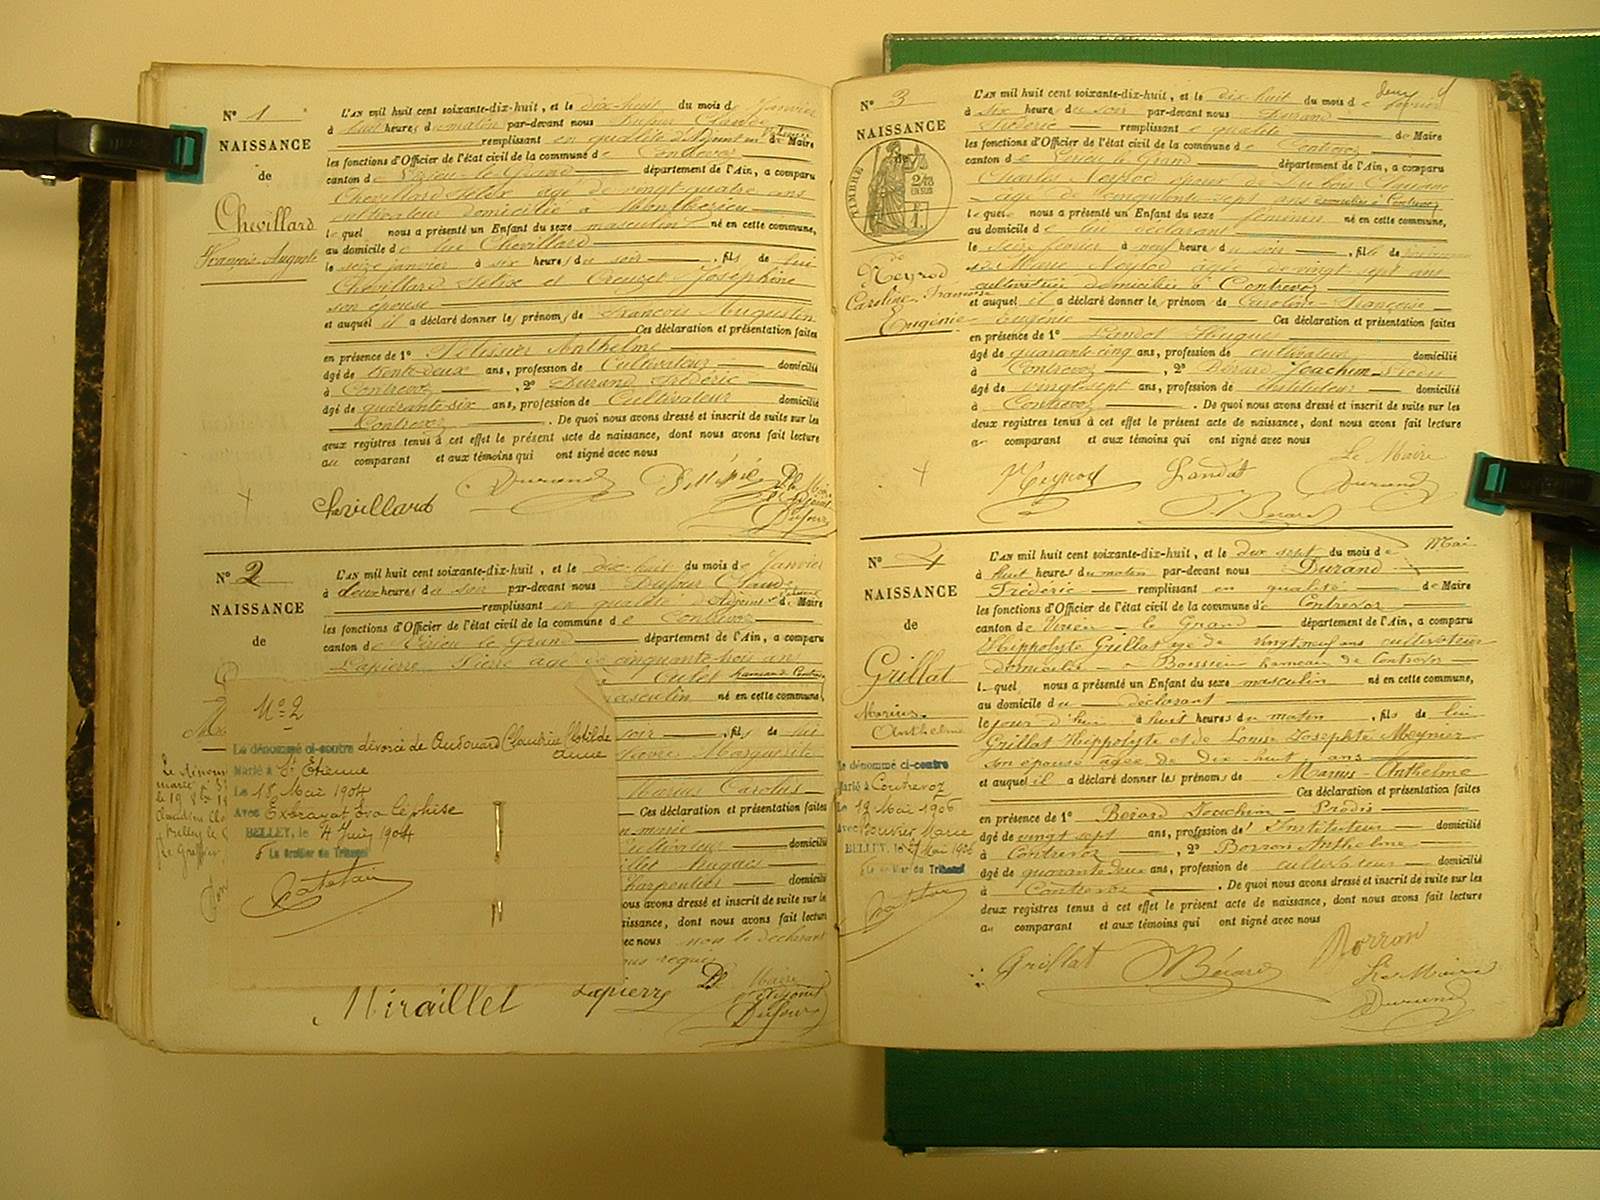 N° 1
NAISSANCE
de
Chevillard
François-Auguste
L'AN mil huit cent soixante-dix-huit, et le dix-huit du mois de Janvier
à huit heures du matin par-devant nous Dufour Claude
remplissant en qualité d'Adjoint de Maire
les fonctions d'Officier de l'état civil de la commune de Contrevoz
canton de Virieu-le-Grand département de l'Ain, a comparu
Chevillard Félix âgé de vingt-quatre ans
cultivateur domicilié à Montbezieu
lequel nous a présenté un Enfant du sexe masculin né en cette commune,
au domicile de lui Chevillard
le seize janvier à six heures du soir, fils de lui
Chevillard Félix et Creuzet Joséphine
son épouse
et auquel il a déclaré donner les prénoms de François Augustin
Ces déclaration et présentation faites
en présence de 1° Pélissier Anthelme
âgé de trente-deux ans, profession de Cultivateur domicilié
à Contrevoz, 2° Durand Frédéric
âgé de quarante-six ans, profession de Cultivateur domicilié
Contrevoz. De quoi nous avons dressé et inscrit de suite sur les
deux registres tenus à cet effet le présent acte de naissance, dont nous avons fait lecture
au comparant et aux témoins qui ont signé avec nous
Chevillard Durand Dufour
N° 2
NAISSANCE
de
L'AN mil huit cent soixante-dix-huit, et le dix-huit du mois de Janvier
à deux heures du soir par-devant nous Dufour Claude
remplissant en qualité d'Adjoint de Maire
les fonctions d'Officier de l'état civil de la commune de Contrevoz
canton de Virieu le Grand département de l'Ain, a comparu
Lapierre Pierre âgé de cinquante-trois ans
Culet hameau de Contrevoz
masculin né en cette commune,
soir, fils de lui
Marguerite
Marius Carolus
Ces déclaration et présentation faites
Cultivateur domicilié
Hugues
Charpentier domicilié
nous avons dressé et inscrit de suite sur les
naissance, dont nous avons fait lecture
avec nous non le déclarant
requis
Miraillet Lapierre Dufour
N° 2
Le dénommé ci-contre divorcé de Audouard Claudine Clotilde
Anne
Marié à St Etienne
Le 18 Mai 1904
Avec Exbrayat Eva Céphise
BELLEY, le 4 Juin 1904
Le Greffier du Tribunal
N° 3
NAISSANCE
TIMBRE
de
Neyrod
Caroline-Françoise
Eugénie
L'AN mil huit cent soixante-dix-huit, et le dix huit du mois de février
à six heures du soir par-devant nous Durand
Frédéric remplissant en qualité de Maire
les fonctions d'Officier de l'état civil de la commune de Contrevoz
canton de Virieu le Grand département de l'Ain, a comparu
Charles Neyrod époux de Dubois Claudine
âgé de cinquante sept ans domicilié à Contrevoz
lequel nous a présenté un Enfant du sexe féminin né en cette commune,
au domicile de lui déclarant
le seize février à neuf heures du soir, fille de
Marie Neyrod âgée de vingt sept ans
cultivatrice domiciliée à Contrevoz
et auquel il a déclaré donner les prénoms de Caroline-Françoise
Eugénie Ces déclaration et présentation faites
en présence de 1° Landot Hugues
âgé de quarante-cinq ans, profession de cultivateur domicilié
à Contrevoz, 2° Bérard Joachim-Prodis
âgé de vingt-sept ans, profession de Instituteur domicilié
à Contrevoz. De quoi nous avons dressé et inscrit de suite sur les
deux registres tenus à cet effet le présent acte de naissance, dont nous avons fait lecture
au comparant et aux témoins qui ont signé avec nous
Le Maire
Neyrod Landot Durand
Bérard
N° 4
NAISSANCE
de
Grillat
Marius
Anthelme
L'AN mil huit cent soixante-dix-huit, et le dix sept du mois de Mai
à huit heures du matin par-devant nous Durand
Frédéric remplissant en qualité de Maire
les fonctions d'Officier de l'état civil de la commune de Contrevoz
canton de Virieu-le Grand département de l'Ain, a comparu
Hippolyte Grillat âgé de vingt neuf ans cultivateur
domicilié à Boissieu hameau de Contrevoz
lequel nous a présenté un Enfant du sexe masculin né en cette commune,
au domicile du déclarant
le jour d'hui à huit heures du matin, fils de lui
Grillat Hippolyte et de Louise Josephte Meynier
son épouse âgée de dix-huit ans
et auquel il a déclaré donner les prénoms de Marius-Anthelme
Ces déclaration et présentation faites
en présence de 1° Bérard Joachim-Prodis
âgé de vingt sept ans, profession d'Instituteur domicilié
à Contrevoz, 2° Borron Anthelme
âgé de quarante deux ans, profession de cultivateur domicilié
à Contrevoz. De quoi nous avons dressé et inscrit de suite sur les
deux registres tenus à cet effet le présent acte de naissance, dont nous avons fait lecture
au comparant et aux témoins qui ont signé avec nous
Grillat Bérard Borron
Le Maire
Durand
Le dénommé ci-contre
Marié à Contrevoz
Le 19 Mai 1906
Avec Bouvier Marie
BELLEY, le 27 Mai 1906
Le Greffier du Tribunal